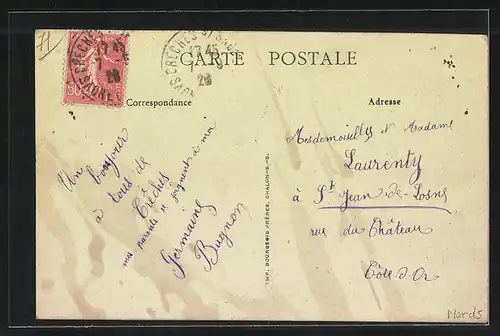 11
CRÈCHES S/ SAÔNE
17 45
28
50
CARTE POSTALE
Correspondance
Adresse
Un bonjour
à tous de
Crêches
ma parente se joignant à ma
Germaine
Bugnon
IMP. BOURGEOIS FRÈRES, CHALON-S.-S.
Mesdemoiselles et Madame
Laurenty
à St Jean-de-Losne
rue du Château
Côte d'Or